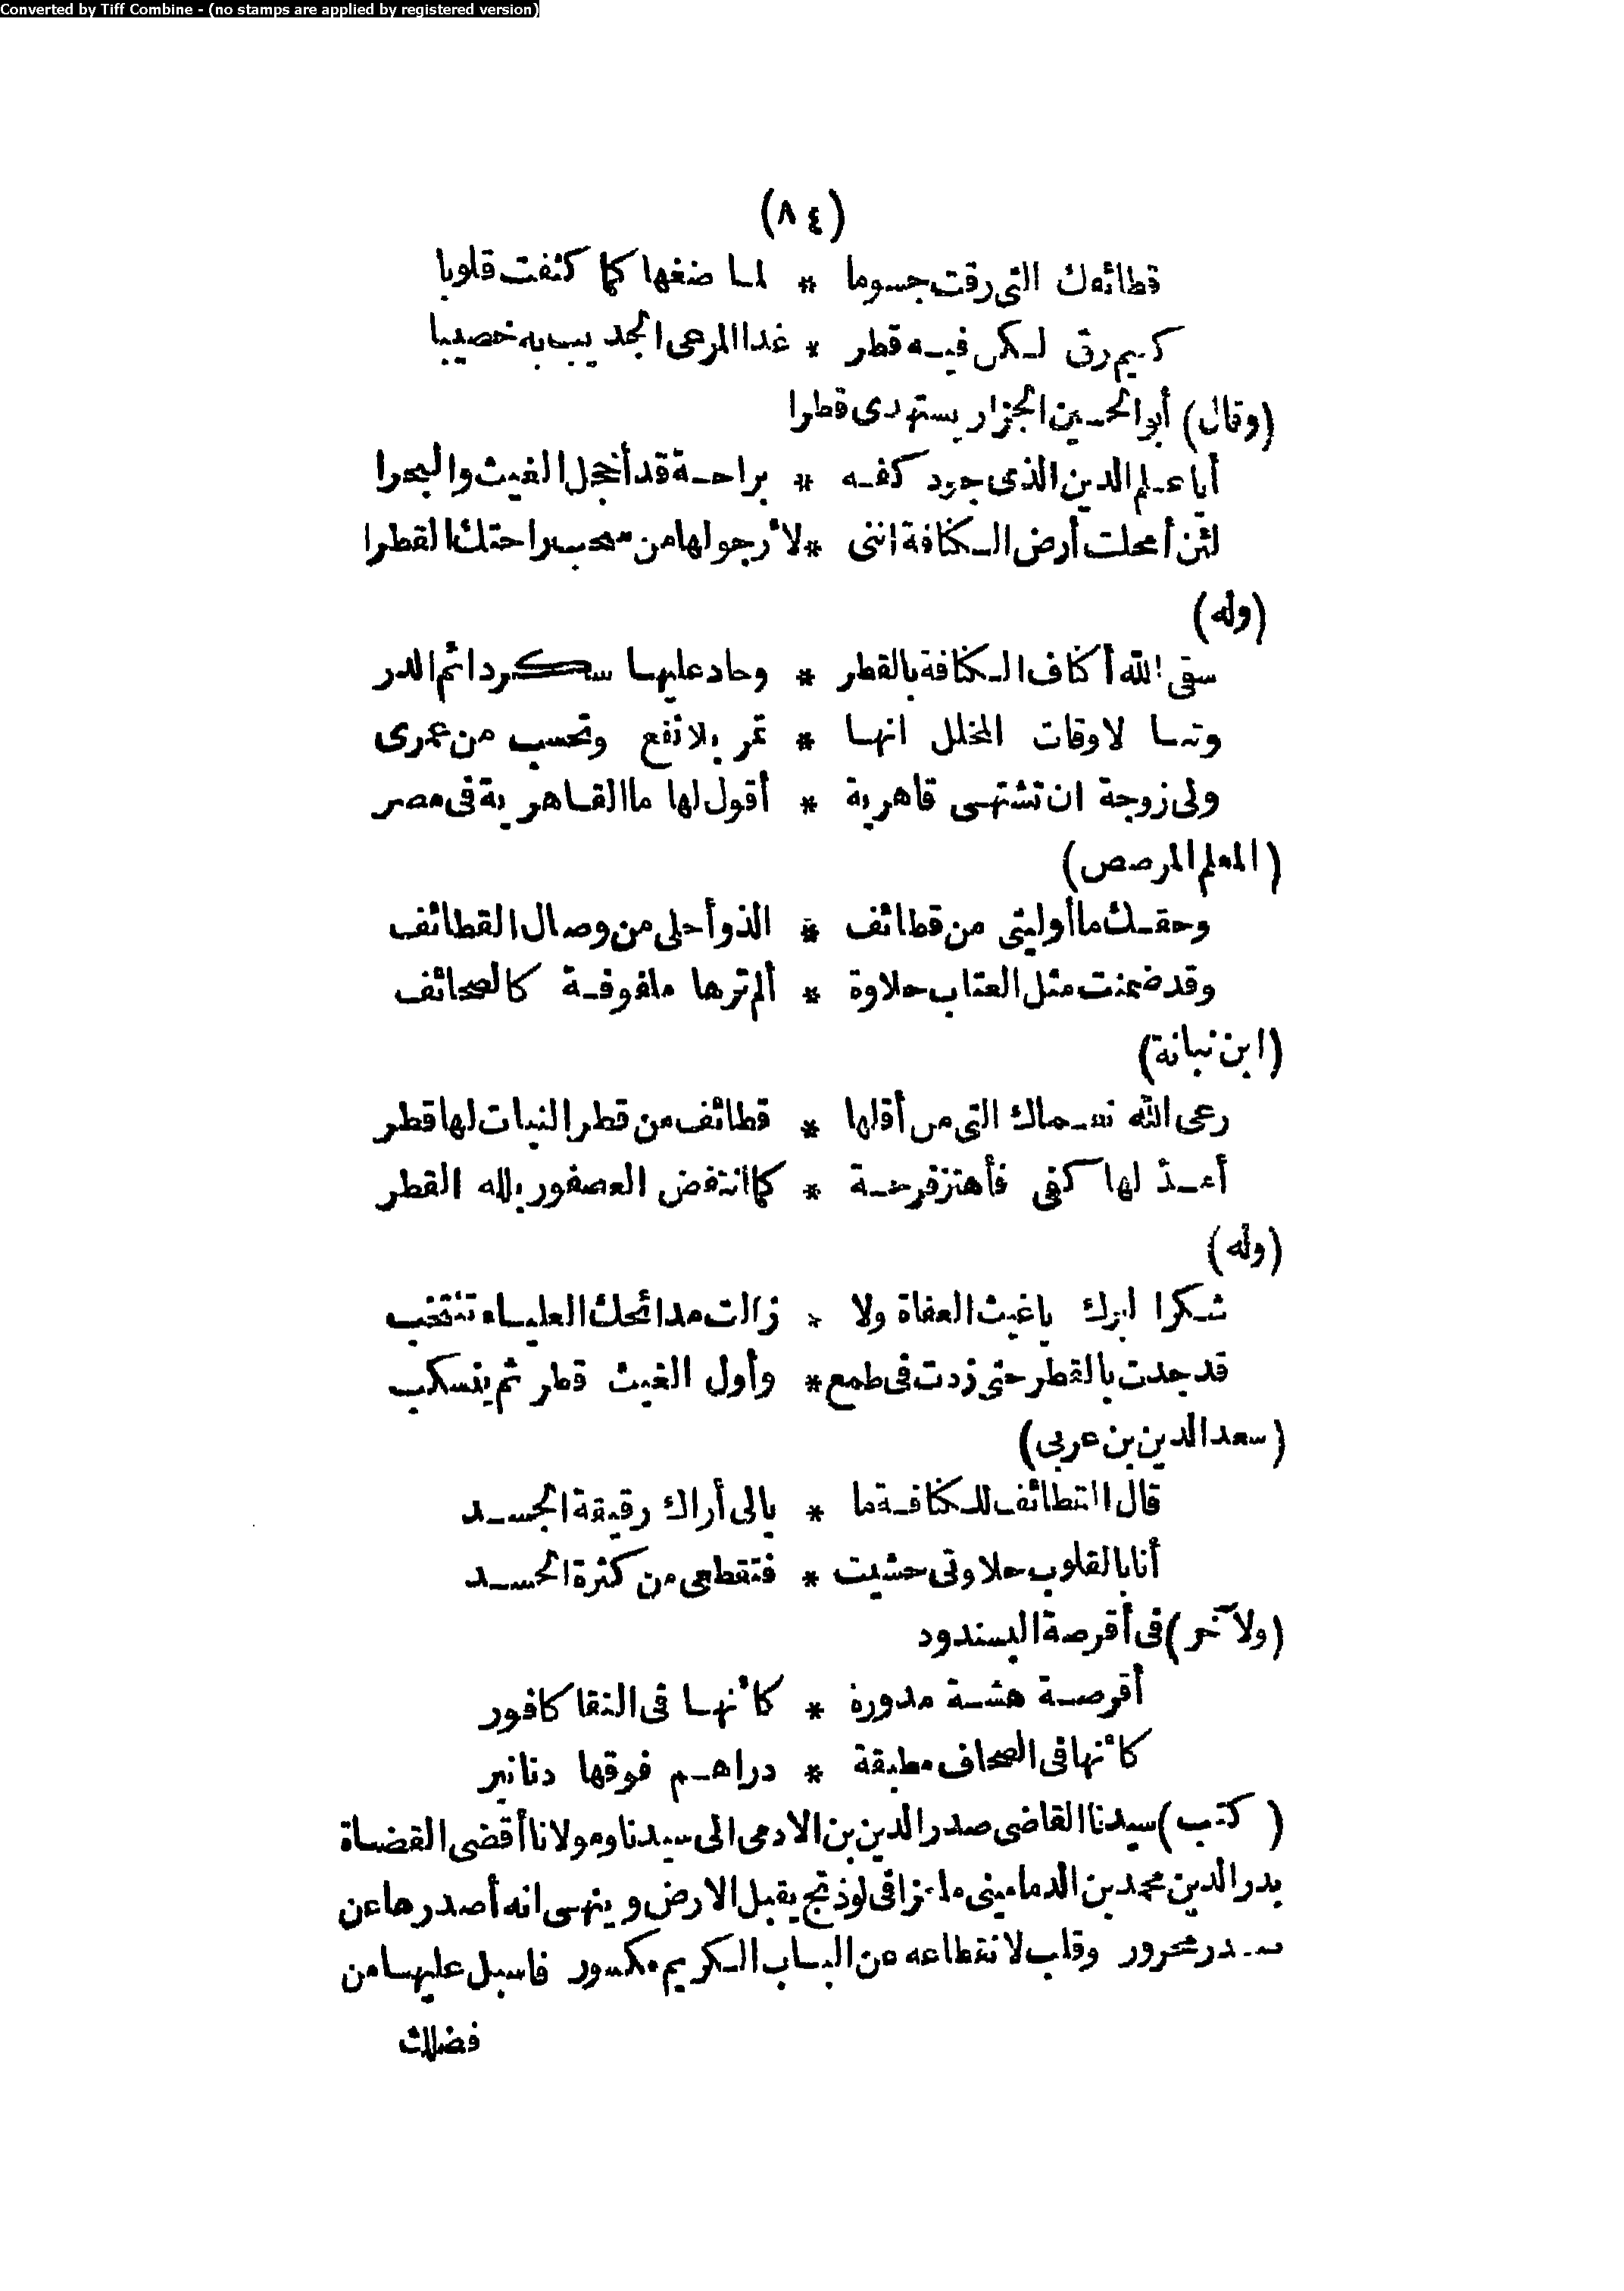 Converted by Tiff Combine - (no stamps are applied by registered version)
(٨٤)
قطائفك التى رقت جسوما * لماضغها كما كثفت قلوبا
كريم رق لكن فيه قطر * غدا المرعى الجديب به خصيبا
(وقال) أبو الحسين الجزار يستهدى قطرا
أيا علم الدين الذى جود كفه * براحة قد أخجل الغيث والبحرا
لئن أمحلت أرض الكنافة اننى * لأرجو لها من سحب راحتك القطرا
(وله)
سقى الله أكناف الكنافة بالقطر * وجاد عليها سكر دائم الدر
وتبا لاوقات المخلل انها * تمر بلا نفع وتحسب من عمرى
ولى زوجة ان تشتهى قاهرية * أقول لها ما القاهرية فى مصر
(المعلم المرصص)
وحقك ما أوليتى من قطائف * الذ وأحلى من وصال القطائف
وقد ضمنت مثل العتاب حلاوة * ألم ترها ملفوفة كالصحائف
(ابن نباتة)
رعى الله التى من أقلها * قطائف من قطر النبات لها قطر
أمد لها كفى فأهتز فرحة * كما انتفض العصفور بلله القطر
(وله)
شكرا لبرك يا غيث العفاة ولا * زالت مدائحك العلياء تنتخب
قد جدت بالقطر حتى زدت فى طمع * وأول الغيث قطر ثم ينسكب
(سعد الدين بن عربى)
قال القطائف للكنافة ما * بالى أراك رقيقة الجسد
أنا بالقلوب حلاوتى حشيت * فتقطعى من كثرة الحسد
(ولآخر) فى أقرصة البسندود
أقرصة هشة مدورة * كأنها فى النقا كافور
كأنها فى الصحاف مطبقة * دراهم فوقها دنانير
(كتب) سيدنا القاضى صدر الدين بن الادمى الى سيدنا ومولانا أقضى القضاة
بدر الدين محمد بن الدمامينى يقبل الارض وينهى انه أصدرها عن
صدر محرور وقلب لانقطاعه عن الباب الكريم مكسور فاسبل عليها من
فضلك